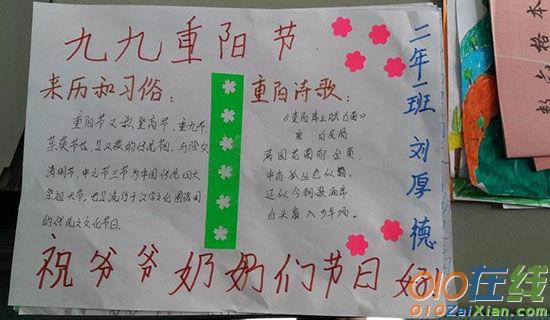 九九重阳节
来历和习俗：
重阳节又称登高节、重九节、
茱萸节，是汉族的传统节日，与除夕、
清明节、中元节三节为中国传统四大
祭祖大节。也是流行于汉字文化圈诸国
的传统文化节日。
重阳诗歌：
《重阳席上赋白菊》
唐 白居易
满园花菊郁金黄，
中有孤丛色似霜。
还似今朝歌酒席，
白头翁入少年场。
二年一班 刘厚德
祝爷爷奶奶们节日好
数学格本
010在线
010ZaiXian.com